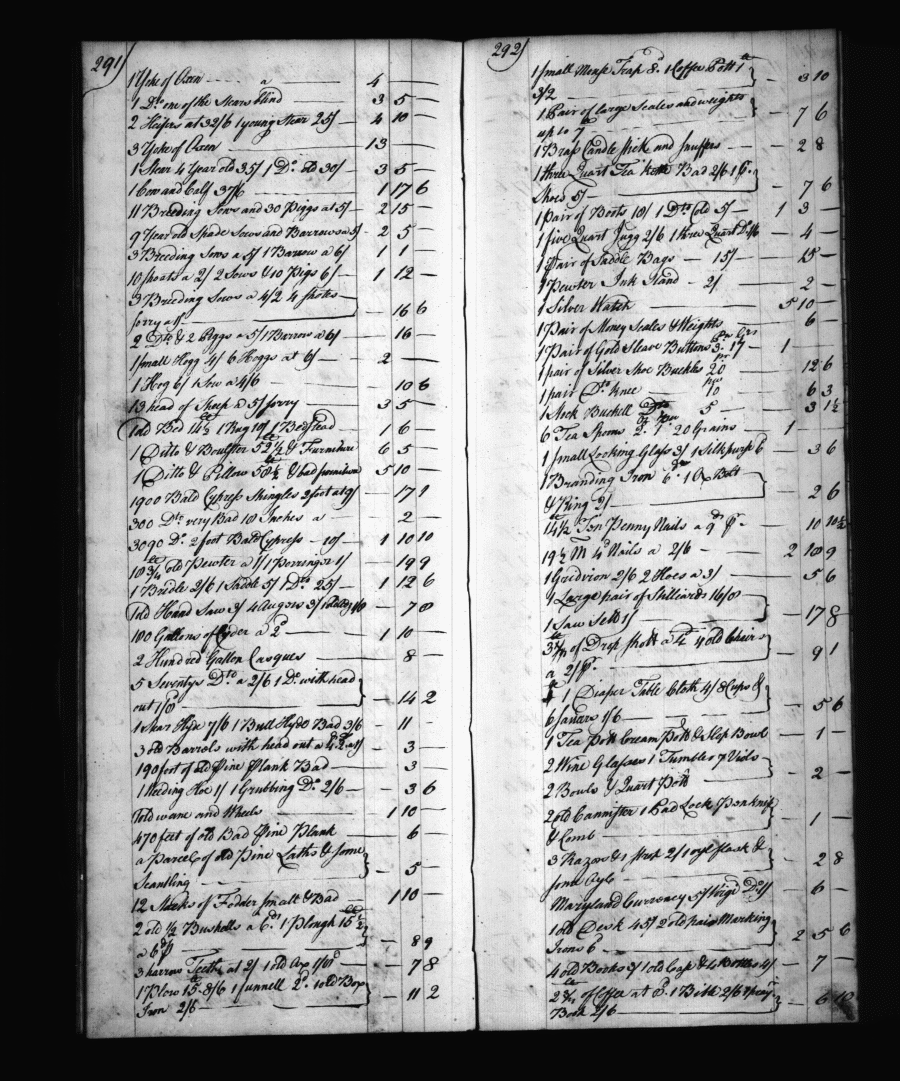 291
1 Yoke of Oxen a 4 — —
1 Do. one of the Stears blind 3 5 —
2 Heifers at 32/6 1 young Stear 25/ 4 10 —
3 Yoke of Oxen 13 — —
1 Stear 4 Year old 35/ 1 Do. old 30/ 3 5 —
1 Cow and Calf 37/6 1 17 6
11 Breeding Sows and 30 Piggs at 5/ 2 15 —
9 Year old Spade Sows and Barrows a 5/ 2 5 —
3 Breeding Sows a 5/ 1 Barrow a 6/ 1 1 —
10 shoats a 2/ 2 Sows & 10 Pigs 6/ 1 12 —
3 Breeding Sows a 4/2 4 shotes
sorry a 1/ — 16 6
2 Do. & 2 Piggs a 5/ 1 Barrow a 6/ — 16 —
1 small Hogg 4/ 6 Hoggs at 6/ 2 — —
1 Hog 6/ 1 Sow a 4/6 — 10 6
13 head of Sheep a 5/ sorry 3 5 —
1 old Bed 14½ 1 Rug 10/ 1 Bedstead — 6 —
1 Ditto & Boulster 52½ & Furniture 6 5 —
1 Ditto & Pillow 50½ & bad furniture 5 10 —
1900 Bald Cypress Shingles 2 foot at 9/ — 17 1
300 Do. very Bad 18 Inches a — 2 —
3090 Do. 2 foot Bald Cypress 10/ 1 10 10
18¾ old Pewter a 1/ 1 Porringer 1/ — 19 9
1 Bridle 2/6 1 Saddle 5/ 1 Do. 25/ 1 12 6
1 old Hand Saw 3/ 4 Augers 3/ — 7 8
180 Gallons of Cyder a 2d 1 10 —
2 Hundred Gallon Casques — 8 —
5 Seventys Do. a 2/6 1 Do. with head
out 1/8 — 14 2
1 Stear Hyde 7/6 1 Bull Hyde Bad 3/6 — 11 —
3 old Barrels with head out a — 3 —
190 feet of old Pine Plank Bad — 3 —
1 Weeding Hoe 1/ 1 Grubbing Do. 2/6 — 3 6
1 old wane and Wheels 1 10 —
470 feet of old Bad Pine Plank — 6 —
a Parcel of old Pine Laths & some
Scantling — 5 —
12 Stacks of Fodder small & Bad 1 10 —
2 old ½ Bushells a 6d. 1 Plough 15½
a 6d — 8 9
3 harrow Teeth at 2/ 1 old Ax 1/8 — 7 8
1 Plow 15. 8/6 1 funnell 2d. 1 old Box
Iron 2/6 — 11 2
292
1 small Mouse Trap 8. 1 Coffee Pott 1
3/2 — 3 10
1 Pair of large Scales and weights
up to 7 — 7 6
1 Brass Candle stick and snuffers — 2 8
1 three Quart Tea kettle Bad 2/6 1 P.
Shoes 5/ — 7 6
1 pair of Boots 18/ 1 Do. old 5/ 1 3 —
1 five Quart Jugg 2/6 1 three Quart Do. 1/6 — 4 —
1 Pair of Saddle Bags 15/ — 15 —
1 Pewter Ink Stand 2/ — 2 —
1 Silver Watch 5 10 —
1 Pair of Money Scales & Weights — 6 —
1 Pair of Gold Sleave Buttons 3. 17 1 — —
1 pair of Silver Shoe Buckles 20 — 12 6
1 pair Do. knee 10 — 6 3
1 Stock Buckell 5 — 3 1½
6 Tea Spoons 2. 7. 20 Grains 1 — —
1 small Looking Glass 3/ 1 Silk purse 6 — 3 6
1 Branding Iron 6d 1 Ox Bolt
& Ring 2/ — 2 6
14½ Ten Penny Nails a 9d P. — 10 10½
19½ M 4d Nails a 2/6 2 10 9
1 Gridiron 2/6 2 Hoes a 3/ — 5 6
1 Large pair of Stilliards 16/8
1 Saw Sett 1/ — 17 8
of Drop shott a 4 old Chairs
a 2/ P. — 9 1
1 Diaper Table Cloth 4/ 8 Cups &
6 saucers 1/6 — 5 6
1 Tea Pott Cream Pott & Slop Bowl — 1 —
2 Wine Glasses 1 Tumbler 7 Viols
2 Bowls & Quart Pott — 2 —
2 old Cannister 1 Pad Lock Penknife
& Comb — 1 —
3 Razors & 1 strop 2/1 oyl flask &
some Oyl — 2 8
Maryland Currency 5/ Virga. Do. 1/ — 6 —
1 old Desk 45/ 2 old pair Marking
Irons 6 2 5 6
4 old Books 3/ 1 old Cap & 4 4/ — 7 —
of Coffee at 1 Bible 2/6
Book 2/6 — 6 10